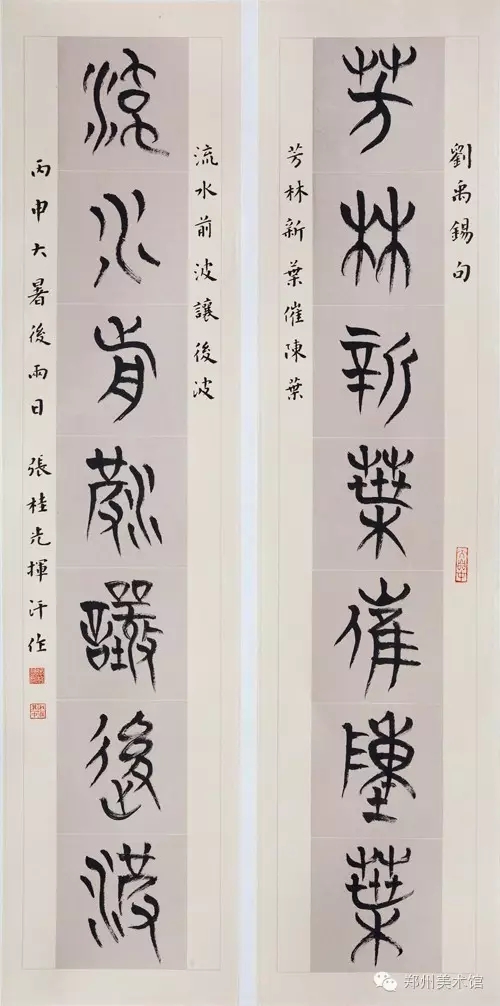 劉禹錫句
芳林新葉催陳葉
芳林新葉催陳葉
流水前波讓後波
流水前波讓後波
丙申大暑後兩日 張桂光揮汗作
郑州美术馆